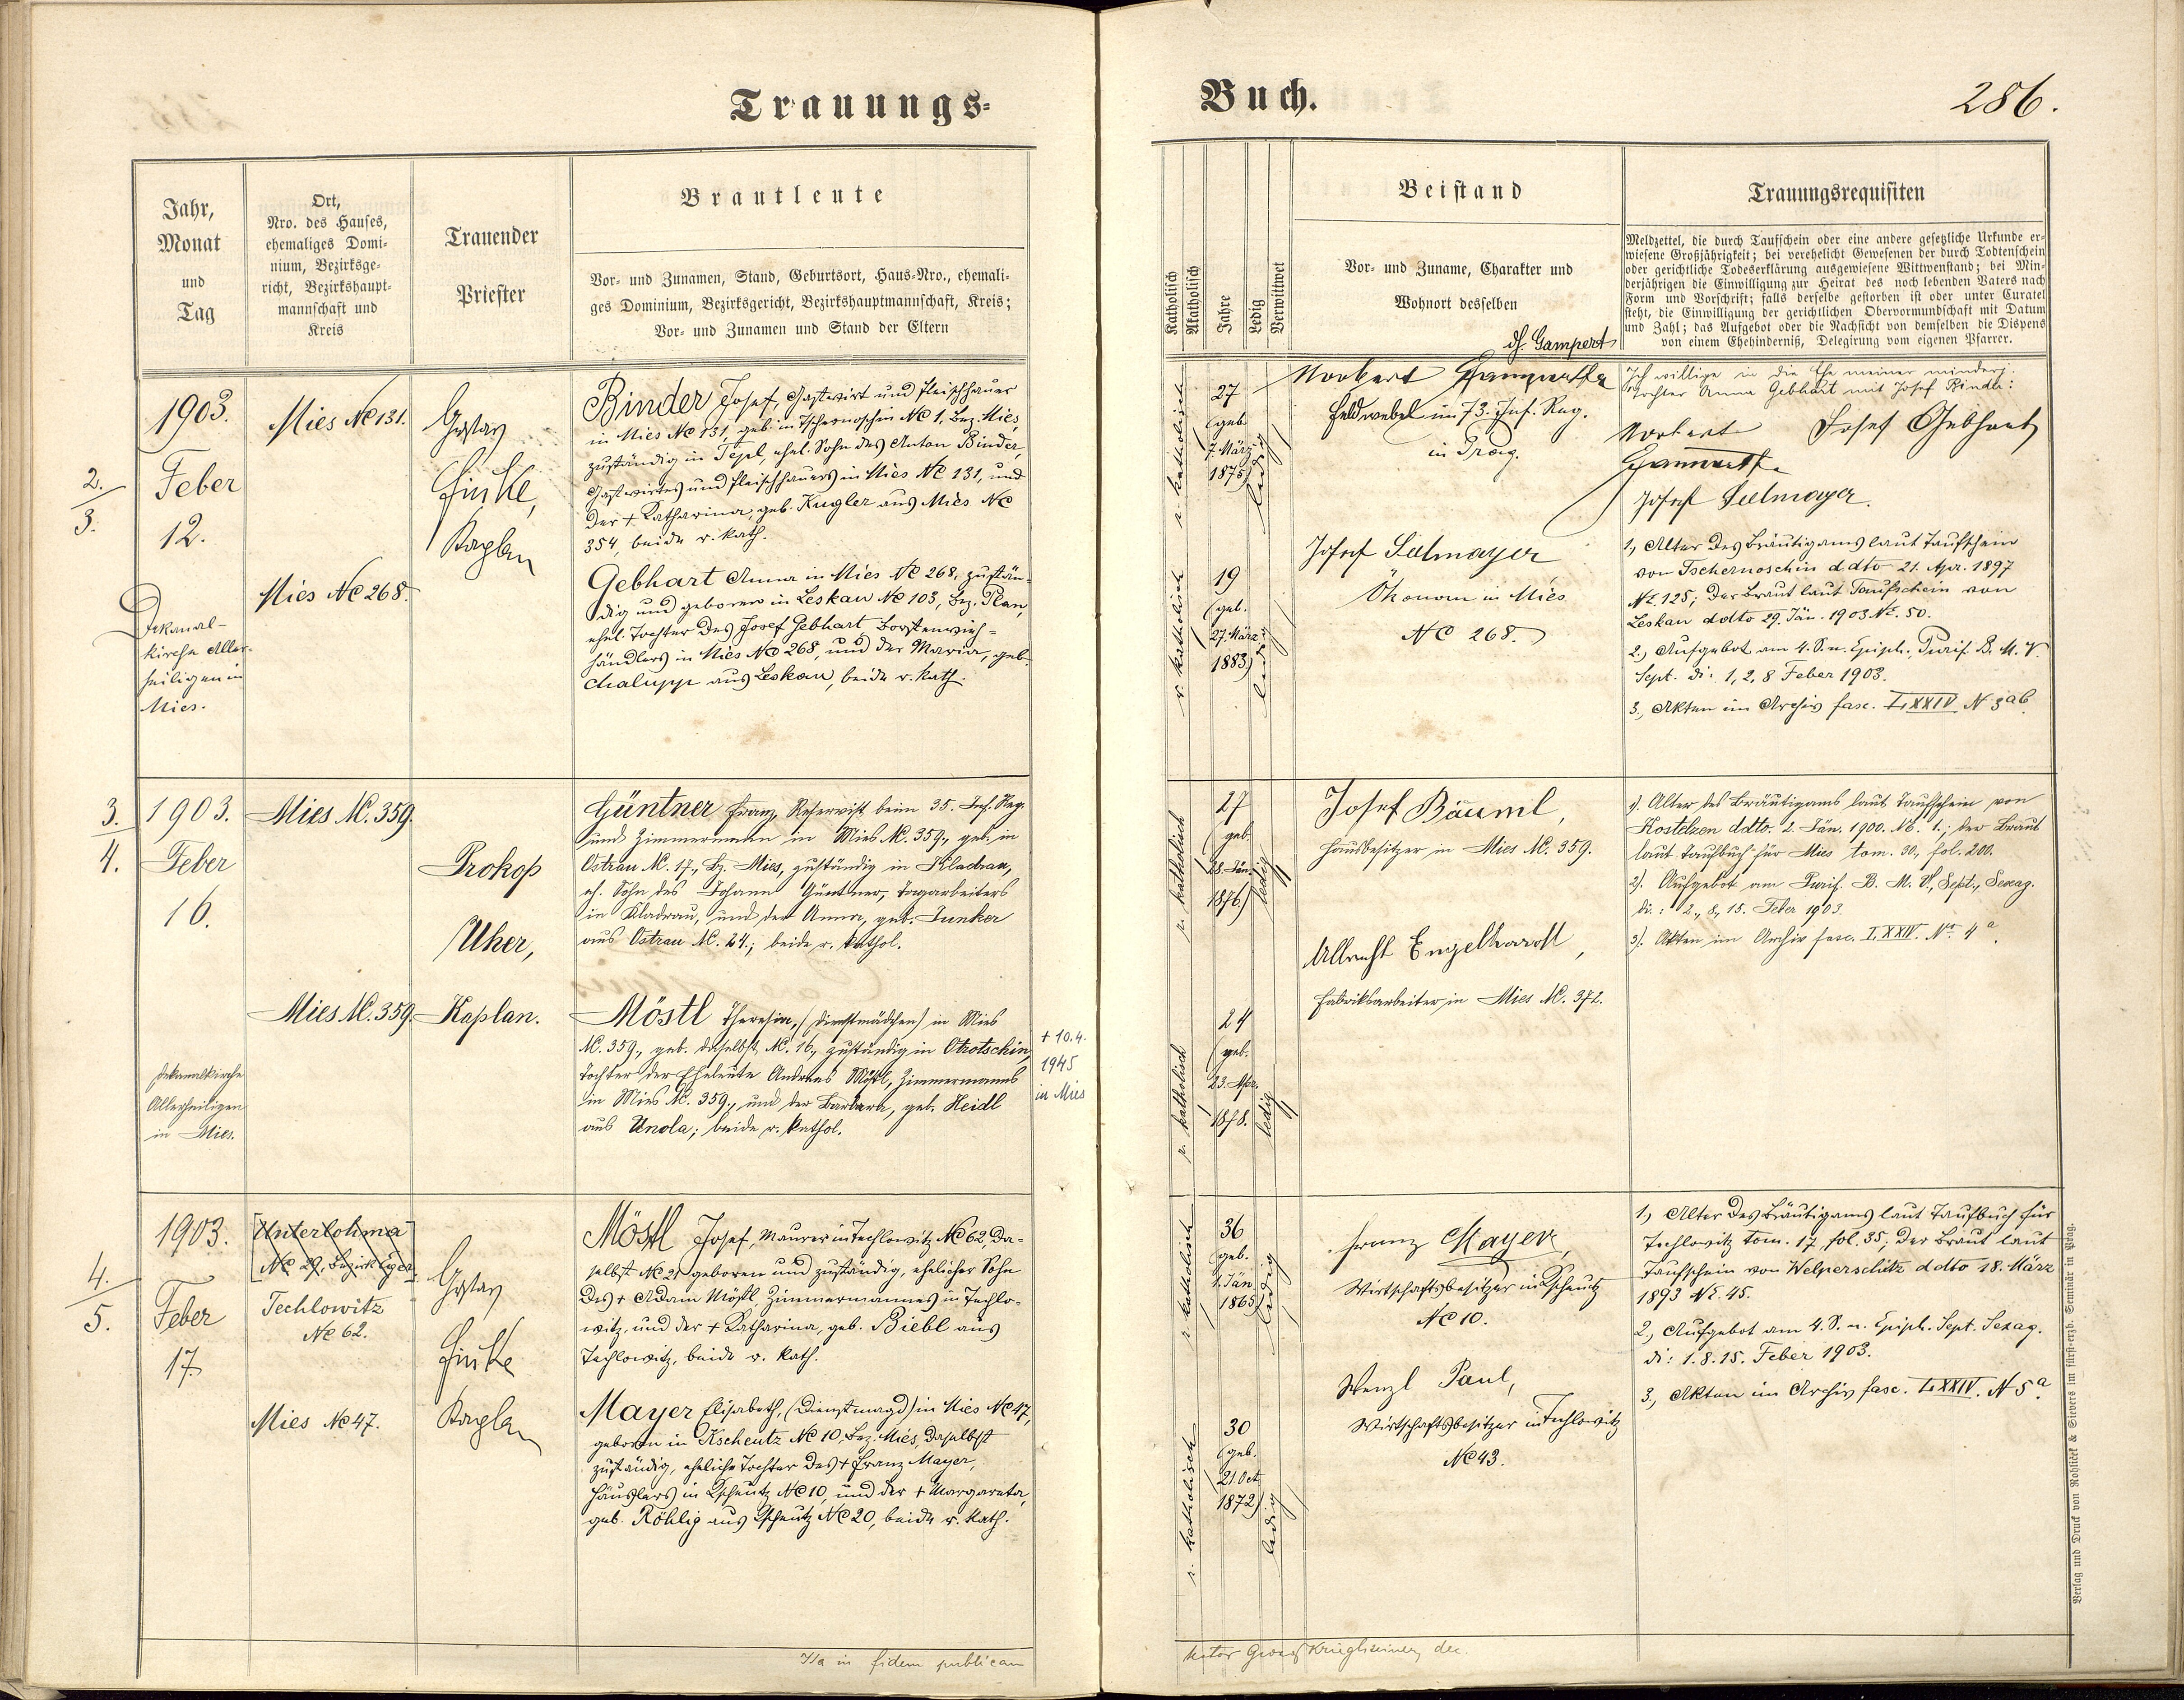 Trauungs-
Buch.
286.
Jahr,
Monat
und
Tag
Ort,
Nro. des Hauses,
ehemaliges Domi-
nium, Bezirksge-
richt, Bezirkshaupt-
mannschaft und
Kreis
Trauender
Priester
Brautleute
Vor- und Zunamen, Stand, Geburtsort, Haus-Nro., ehemali-
ges Dominium, Bezirksgericht, Bezirkshauptmannschaft, Kreis;
Vor- und Zunamen und Stand der Eltern
Katholisch
Akatholisch
Jahre
Ledig
Verwittwet
Beistand
Vor- und Zuname, Charakter und
Wohnort desselben
Trauungsrequisiten
Meldzettel, die durch Taufschein oder eine andere gesetzliche Urkunde er-
wiesene Großjährigkeit; bei verehelicht Gewesenen der durch Todtenschein
oder gerichtliche Todeserklärung ausgewiesene Wittwenstand; bei Min-
derjährigen die Einwilligung zur Heirat des noch lebenden Vaters nach
Form und Vorschrift; falls derselbe gestorben ist oder unter Curatel
steht, die Einwilligung der gerichtlichen Obervormundschaft mit Datum
und Zahl; das Aufgebot oder die Nachsicht von demselben die Dispens
von einem Ehehinderniß, Delegirung vom eigenen Pfarrer.
2.
3.
1903.
Feber
12.
Dekanal-
kirche Aller-
heiligen in
Mies.
Mies Nc 131.
Mies Nc 268.
Gustav
Finke,
Kaplan
Binder Josef, Gastwirt und Fleischhauer
in Mies Nc 131, geb. in Tschernoschin Nc 1, Bez. Mies,
zuständig in Tepl, ehel. Sohn des Anton Binder,
Gastwirtes und Fleischhauers in Mies Nc 131, und
der + Katharina, geb. Kugler aus Mies Nc
354, beide r. kath.
Gebhart Anna in Mies Nc 268, zustän-
dig und geboren in Leskau Nc 103, Bez. Plan,
ehel. Tochter des Josef Gebhart Borstenvieh-
händlers in Mies Nc 268, und der Maria, geb.
Chalupp aus Leskau, beide r. kath.
r. katholisch
27
(geb.
7. März
1875)
ledig
r. katholisch
19
(geb.
27. März
1883)
ledig
dh. Gampert
Norbert
Feldwebel im 73. Inf. Reg.
in Prag.
Josef Selmayer
Ökonom in Mies
Nc 268.
Ich willige in die Ehe meiner minderj.
Tochter Anna Gebhart mit Josef Binder:
Norbert Josef Gebhart
Josef Selmayer.
1., Alter des Bräutigams laut Taufschein
von Tschernoschin ddto 21. Apr. 1897
No. 125; der Braut laut Taufschein von
Leskau ddto 29. Jän. 1903 No. 50.
2., Aufgebot am 4. S. n. Epiph., Purif. B. M. V.
Sept. di: 1, 2, 8 Feber 1903.
3., Akten im Archiv fasc. I, XXIV N 3ab
3.
4.
1903.
Feber
16.
Dekanalkirche
Allerheiligen
in Mies.
Mies Nc. 359.
Mies Nc. 359.
Prokop
Uher,
Kaplan.
Güntner Franz, Reservist beim 35. Inf. Reg.
und Zimmermann in Mies Nc. 359., geb. in
Ostrau Nc. 17., Bz. Mies, zuständig in Kladrau,
eh. Sohn des Johann Güntner, Tagarbeiters
in Kladrau, und der Anna, geb. Junker
aus Ostrau Nc. 24.; beide r. kathol.
Möstl Theresia, (Dienstmädchen) in Mies
Nc. 359., geb. daselbst Nc. 16., zuständig in Otrotschin,
Tochter der Eheleute Andreas Möstl, Zimmermanns
in Mies Nc. 359., und der Barbara, geb. Heidl
aus Unola; beide r. kathol.
+ 10.4.
1945
in Mies
r. katholisch
27
(geb.
28. Jän.
1876.)
ledig
r. katholisch
24
(geb.
23. Apr.
1878.
ledig
Josef Bäuml,
Hausbesitzer in Mies Nc. 359.
Albrecht Engelhardt,
Fabriksarbeiter in Mies Nc. 372.
1). Alter des Bräutigams laut Taufschein von
Kostelzen ddto. 2. Jän. 1900. No. 1.; der Braut
laut Taufbuch für Mies tom. 30., fol. 200.
2). Aufgebot am Purif. B. M. V., Sept., Sexag.
di.: 2., 8., 15. Feber 1903.
3). Akten im Archiv fasc. I. XXIV. No. 4 a.
4.
5.
1903.
Feber
17.
[Unterlohma
Nc 29, Bezirk Eger]
Techlowitz
Nc 62.
Mies Nc 47.
Gustav
Finke
Kaplan
Möstl Josef, Maurer in Techlowitz Nc 62, da-
selbst Nc 21 geboren und zuständig, ehelicher Sohn
des + Adam Möstl Zimmermannes in Techlo-
witz, und der + Katharina, geb. Biebl aus
Techlowitz, beide r. kath.
Mayer Elisabeth, (Dienstmagd) in Mies Nc 47,
geboren in Kscheutz Nc 10, Bez. Mies, daselbst
zuständig, eheliche Tochter des + Franz Mayer,
Häuslers in Kscheutz Nc 10, und der + Margareta,
geb. Röhlig aus Kscheutz Nc 20, beide r. kath.
r. katholisch
36
(geb.
1. Jän.
1865)
ledig
r. katholisch
30
(geb.
21. Oct.
1872)
ledig
Franz Mayer,
Wirtschaftsbesitzer in Kscheutz
Nc 10.
Wenzl Paul,
Wirtschaftsbesitzer in Techlowitz
Nc 43.
1., Alter des Bräutigams laut Taufbuch für
Techlowitz tom. 17, fol. 35; der Braut laut
Taufschein von Welperschitz ddto 18. März
1893 No. 45.
2., Aufgebot am 4. S. n. Epiph. Sept. Sexag.
di: 1. 8. 15. Feber 1903.
3., Akten im Archiv fasc. I. XXIV. N 5a.
Ita in fidem publicam
Verlag und Druck von Rohliček & Sievers im fürst-erzb. Seminar in Prag.